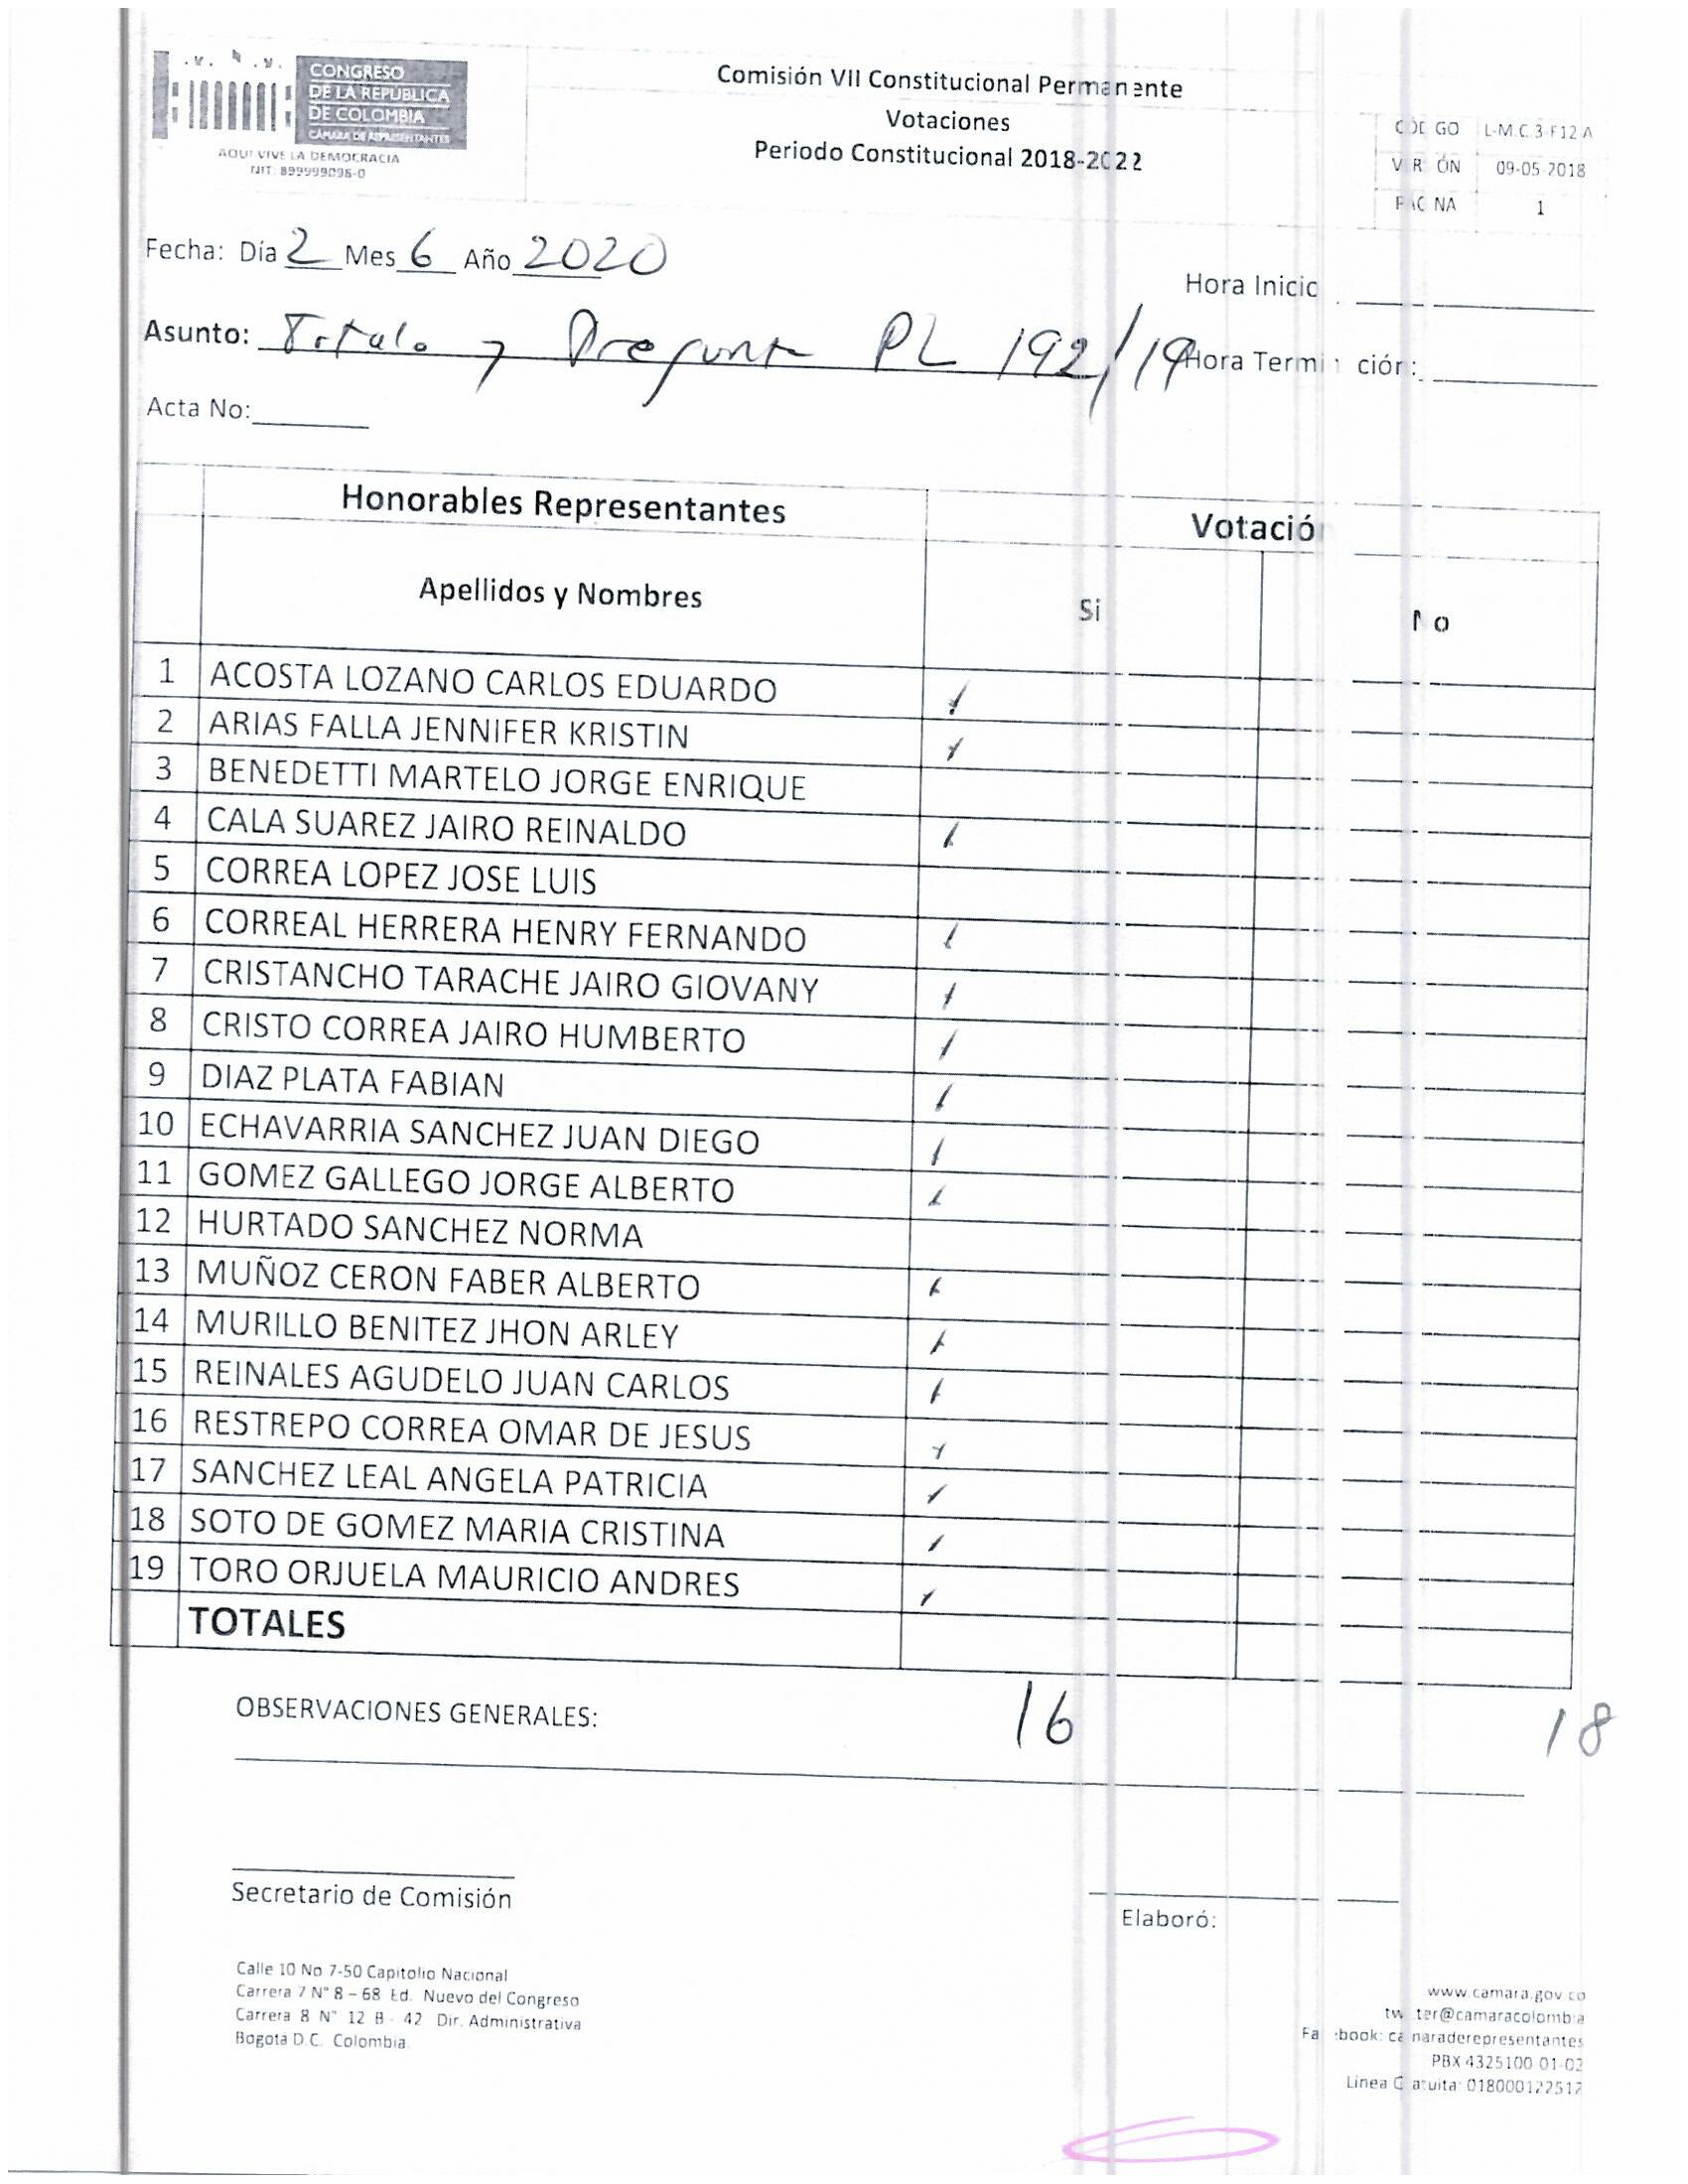 CONGRESO
DE LA REPÚBLICA
DE COLOMBIA
CÁMARA DE REPRESENTANTES
AQUÍ VIVE LA DEMOCRACIA
NIT: 899999098-0
Comisión VII Constitucional Permanente
Votaciones
Periodo Constitucional 2018-2022
CÓDIGO L-M.C.3-F12 A
VERSIÓN 09-05-2018
PÁGINA 1
Fecha: Día 2 Mes 6 Año 2020
Hora Inicio
Asunto: Titulo y Pregunta PL 192/19
Hora Terminación:
Acta No:
Honorables Representantes Votación
Apellidos y Nombres Si No
1 ACOSTA LOZANO CARLOS EDUARDO
2 ARIAS FALLA JENNIFER KRISTIN
3 BENEDETTI MARTELO JORGE ENRIQUE
4 CALA SUAREZ JAIRO REINALDO
5 CORREA LOPEZ JOSE LUIS
6 CORREAL HERRERA HENRY FERNANDO
7 CRISTANCHO TARACHE JAIRO GIOVANY
8 CRISTO CORREA JAIRO HUMBERTO
9 DIAZ PLATA FABIAN
10 ECHAVARRIA SANCHEZ JUAN DIEGO
11 GOMEZ GALLEGO JORGE ALBERTO
12 HURTADO SANCHEZ NORMA
13 MUÑOZ CERON FABER ALBERTO
14 MURILLO BENITEZ JHON ARLEY
15 REINALES AGUDELO JUAN CARLOS
16 RESTREPO CORREA OMAR DE JESUS
17 SANCHEZ LEAL ANGELA PATRICIA
18 SOTO DE GOMEZ MARIA CRISTINA
19 TORO ORJUELA MAURICIO ANDRES
TOTALES
OBSERVACIONES GENERALES: 16 18
Secretario de Comisión
Elaboró:
Calle 10 No 7-50 Capitolio Nacional
Carrera 7 N° 8 – 68 Ed. Nuevo del Congreso
Carrera 8 N° 12 B - 42 Dir. Administrativa
Bogotá D.C. Colombia.
www.camara.gov.co
twitter@camaracolombia
Facebook: camaraderepresentantes
PBX 4325100-01-02
Linea Gratuita: 018000122512